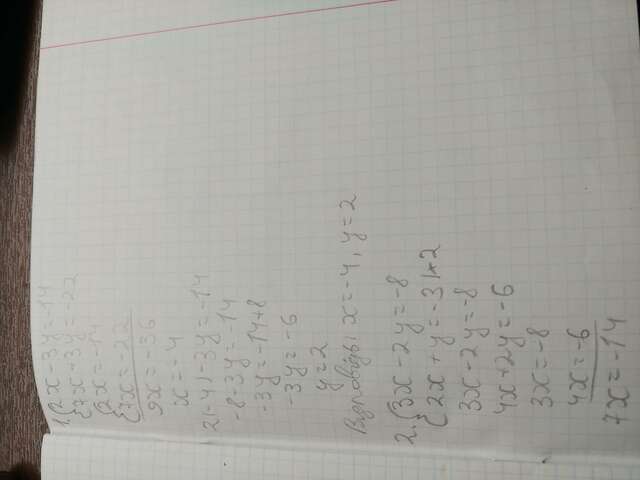 1. {2x-3y=-14
{7x+3y=-22
{2x=-14
{7x=-22
9x=-36
x=-4
2(-4)-3y=-14
-8-3y=-14
-3y=-14+8
-3y=-6
y=2
Відповідь: x=-4, y=2
2. {3x-2y=-8
{2x+y=-3 |*2
3x-2y=-8
4x+2y=-6
3x=-8
4x=-6
7x=-14